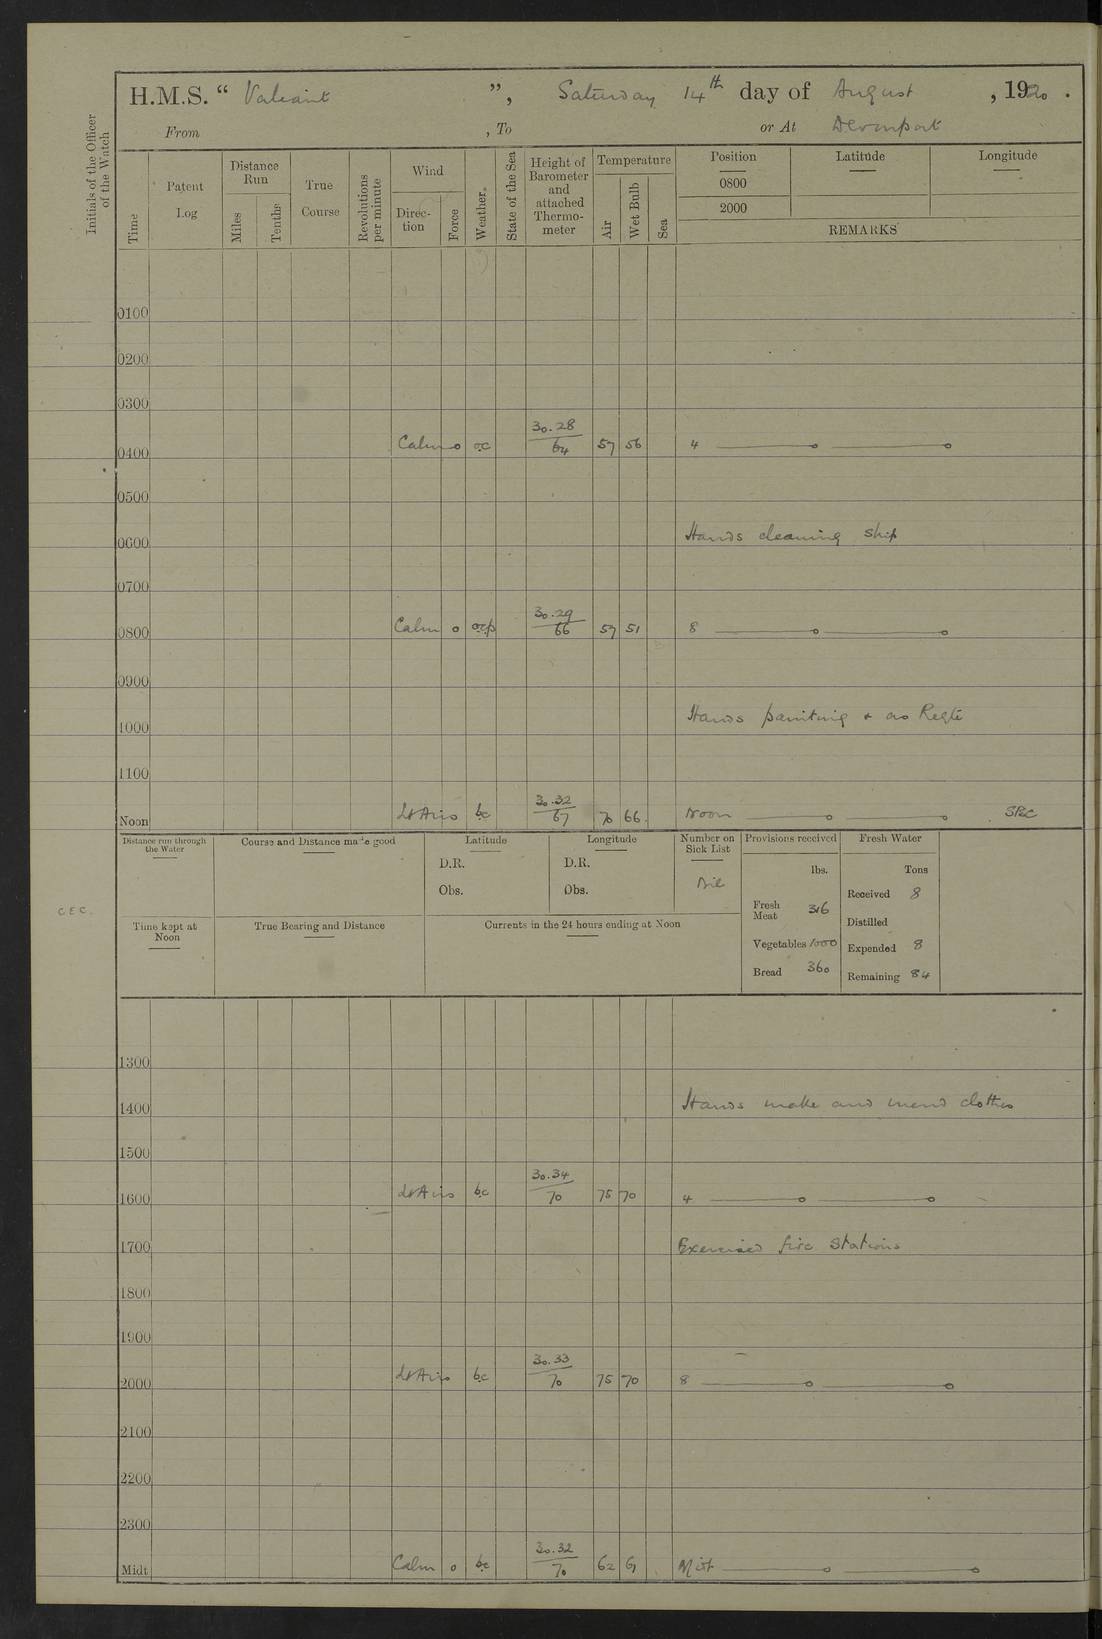 H.M.S. " Valiant ", Saturday 14th day of August, 1920.
From , To or At Devonport
Initials of the Officer of the Watch
Time
Patent Log
Distance Run
Miles
Tenths
True Course
Revolutions per minute
Wind
Direction
Force
Weather.
State of the Sea
Height of Barometer and attached Thermometer
Temperature
Air
Wet Bulb
Sea
Position Latitude Longitude
0800
2000
REMARKS
0100
0200
0300
0400 Calm o oc 30.28/64 57 56 4
0500
0600 Hands cleaning ship
0700
0800 Calm o ocp 30.29/66 57 51 8
0900
1000 Hands painting & as Reqte
1100
Noon Lt Airs bc 30.32/67 70 66. Noon
Distance run through the Water
Course and Distance made good
Latitude
D.R.
Obs.
Longitude
D.R.
Obs.
Number on Sick List
Nil
Provisions received
lbs.
Fresh Meat 316
Vegetables 1000
Bread 360
Fresh Water
Tons
Received 8
Distilled
Expended 8
Remaining 84
C.E.C.
Time kept at Noon
True Bearing and Distance
Currents in the 24 hours ending at Noon
1300
1400 Hands make and mend clothes
1500
1600 Lt Airs bc 30.34/70 75 70 4
1700 Exercised fire Stations
1800
1900
2000 Lt Airs bc 30.33/70 75 70 8
2100
2200
2300
Midt Calm o bc 30.32/70 62 61 Midt